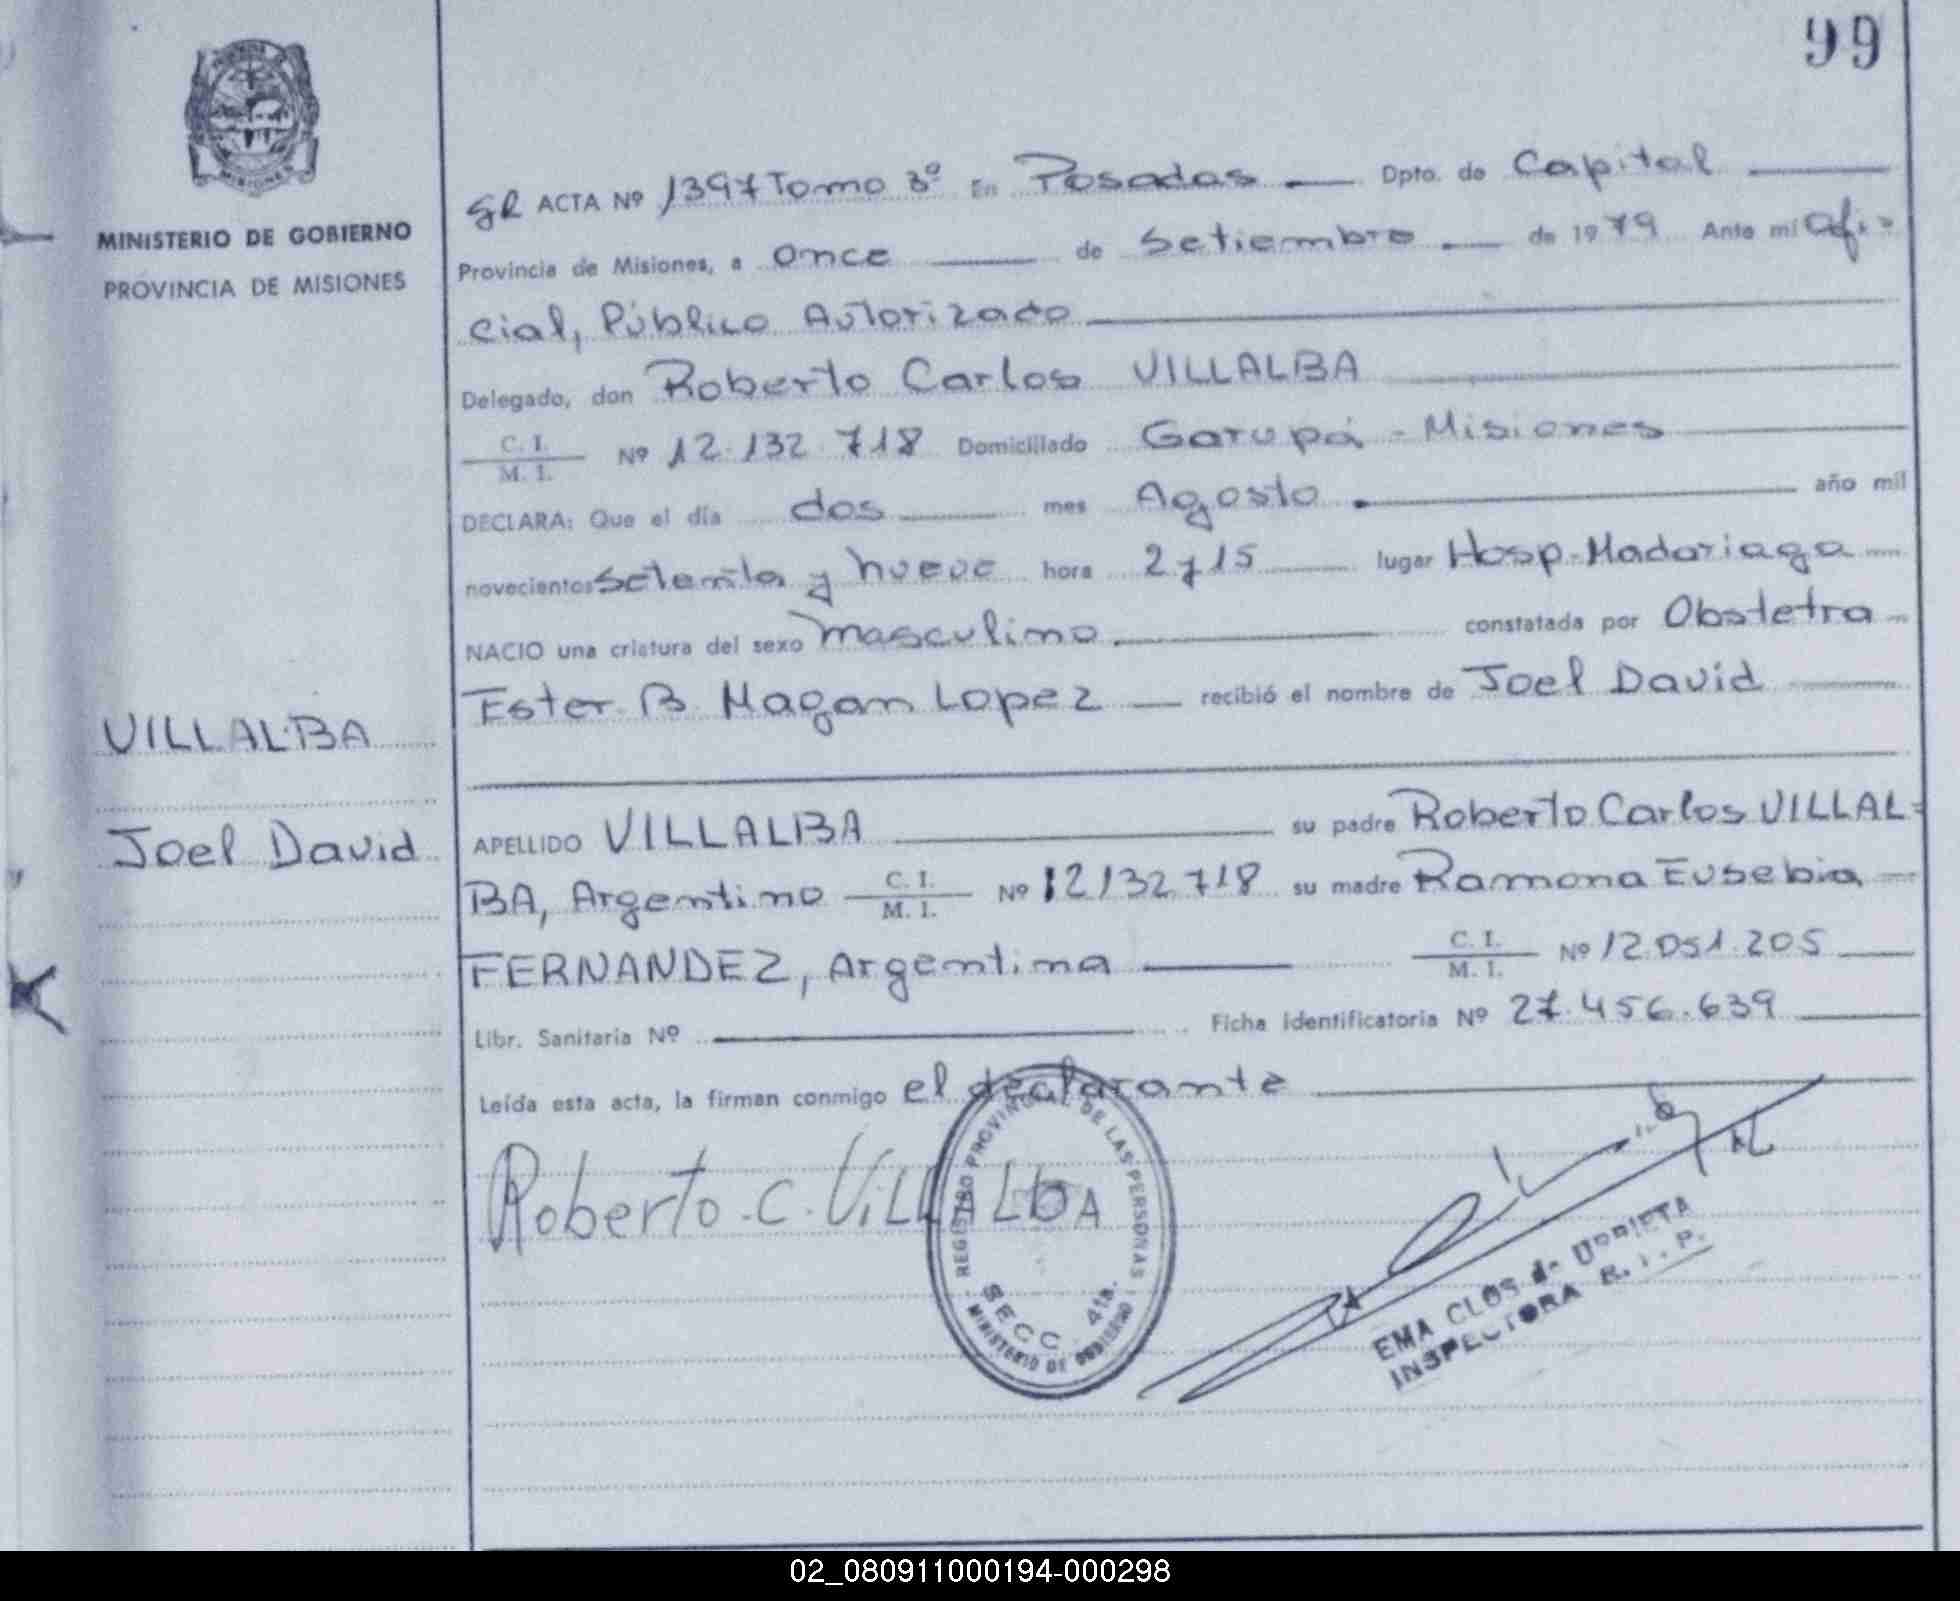 99
MISIONES
MINISTERIO DE GOBIERNO
PROVINCIA DE MISIONES
VILLALBA
Joel David
ACTA Nº 1397 Tomo 3º En Posadas Dpto. de Capital
Provincia de Misiones, a once de Setiembre de 1979 Ante mi Ofi-
cial, Público Autorizado
Delegado, don Roberto Carlos VILLALBA
C. I.
M. I. Nº 12.132.718 Domiciliado Garupá - Misiones
DECLARA: Que el día dos mes Agosto año mil
novecientos setenta y nueve hora 2 y 15 lugar Hosp. Madariaga
NACIO una criatura del sexo masculino constatada por Obstetra
Ester B. Magan Lopez recibió el nombre de Joel David
APELLIDO VILLALBA su padre Roberto Carlos VILLAL=
BA, Argentino C. I. M. I. Nº 12132718 su madre Ramona Eusebia
FERNANDEZ, Argentina C. I. M. I. Nº 12.051.205
Libr. Sanitaria Nº Ficha identificatoria Nº 27.456.639
Leída esta acta, la firman conmigo el declarante
Roberto C. ViLLALbA
REGISTRO PROVINCIAL DE LAS PERSONAS
SECC. 4ta.
MINISTERIO DE GOBIERNO
EMA CLOS de URRIETA
INSPECTORA R. . P.
02_080911000194-000298